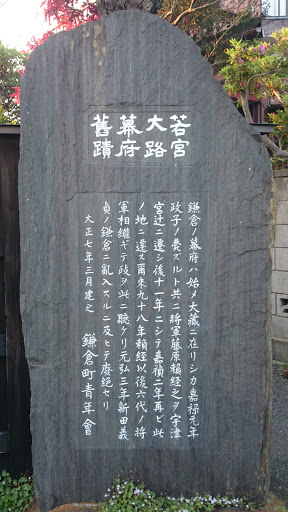 若宮
大路
幕府
舊蹟
鎌倉ノ幕府ハ始メ大藏ニ在リシカ嘉禄元年
政子ノ薨ズルト共ニ將軍藤原頼経之ヲ宇津
宮辻ニ遷シ後十一年ニシテ嘉禎二年再ビ此
ノ地ニ遷ス爾来九十八年頼経以後六代ノ将
軍相継ギテ政ヲ此ニ聴ケリ元弘三年新田義
貞ノ鎌倉ニ乱入スルニ及ヒテ廃絶セリ
大正七年三月建之
鎌倉町青年會